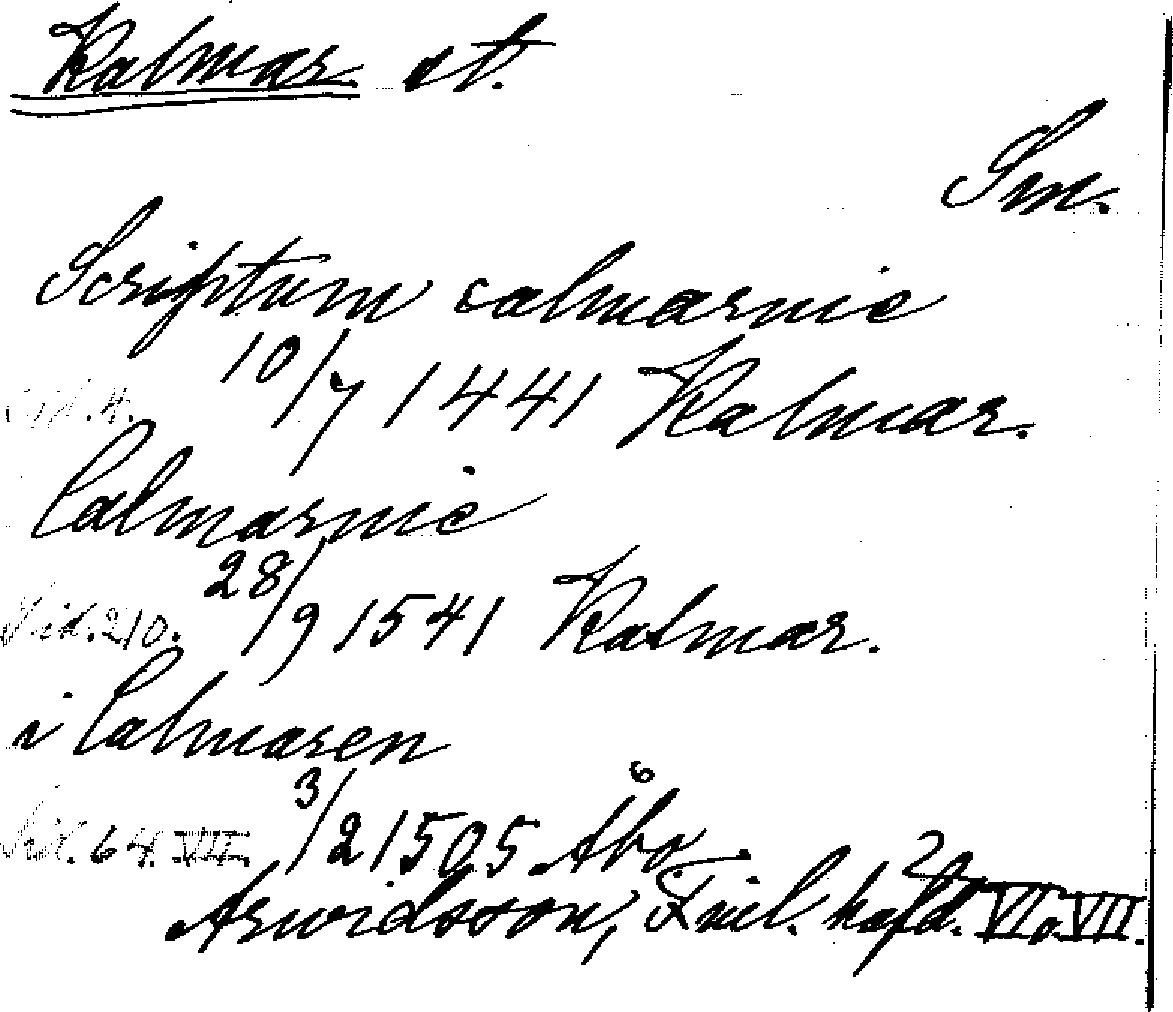 Kalmar st.
Sm.
Scriptum calmarnie
10/7 1441 Kalmar.
sid. 4.
Calmarnie
28/9 1541 Kalmar.
Sid. 210.
i Calmaren
3/2 1505 Åbo.
Sid. 64. VII.
Arwidsson, Finl. häfd. VI o. VII.